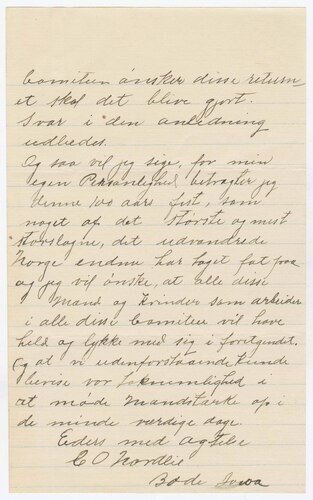 Comiteen ønsker disse return-
et skal det blive gjort.
Svar i den anledning
udbedes.
Og saa vil jeg sige, for min
egen Personlighed betragter jeg
denne 100 aars fest, som
noget af det største og mest
storslagne, det udvandrede
Norge endnu har taget fat paa
og jeg vil ønske, at alle disse
Mænd og Kvinder som arbeider
i alle disse Comiteer vil have
held og lykke med sig i foretagendet.
Og at vi udenforstaaende kunde
bevise vor
at møde mandstærk op i
de minde værdige dage.
Eders med Agtelse
C O Nordlie
Bode Iowa